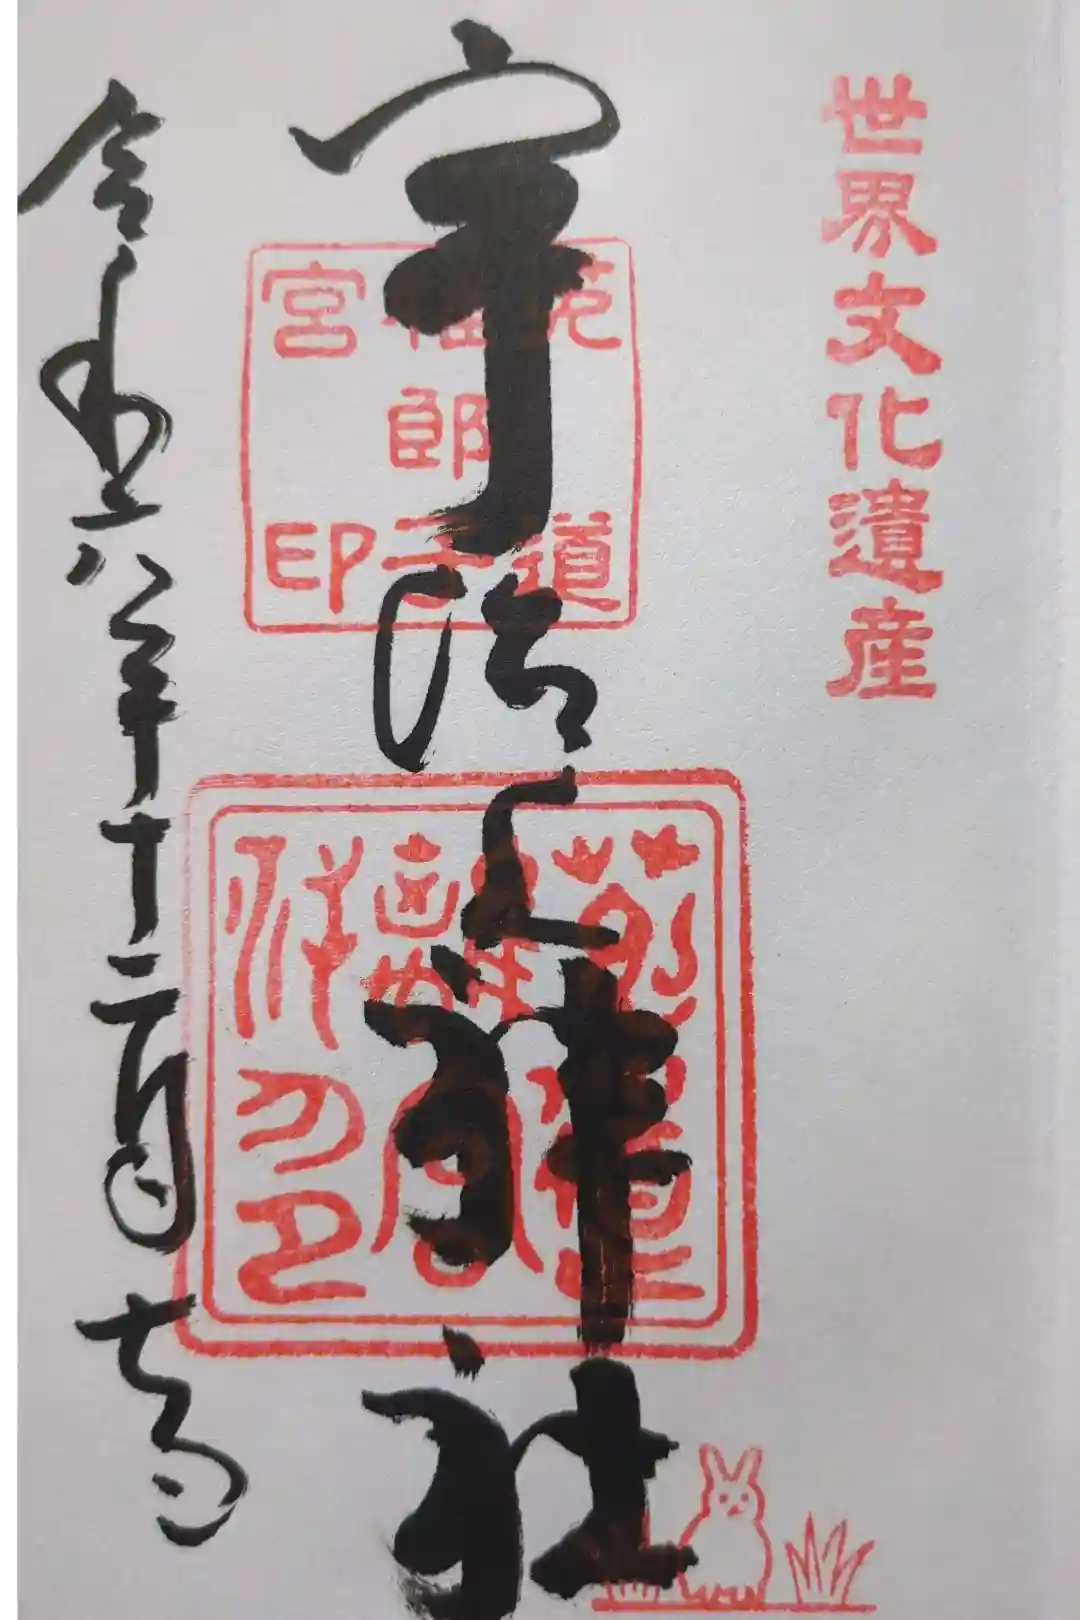 世界文化遺産
宇治上神社
菟道
稚郎子
宮印
令和六年十二月七日